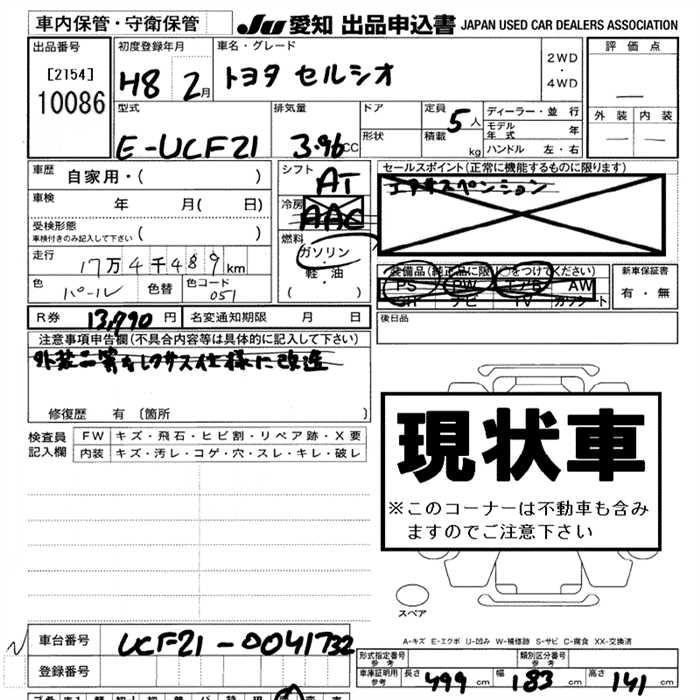 車内保管・守衛保管 JU 愛知 出品申込書 JAPAN USED CAR DEALERS ASSOCIATION
出品番号 初度登録年月 車名・グレード 評価点
[2154] H8 2月 トヨタ セルシオ 2WD ・ 4WD
10086 外装 内装
型式 排気量 ドア 定員 5人 ディーラー・並行
モデル年式 年
E-UCF21 3.96CC 形状 積載 kg ハンドル 左・右
車歴 自家用・( ) シフト AT セールスポイント(正常に機能するものに限ります)
エアサスペンション
車検 年 月( 日) 冷房 AAC
受検形態 車検付きのみ記入して下さい ( ) 燃料 ガソリン・軽・油 ( )
走行 17万4千489km
装備品(純正品に限り○をつけてください) 新車保証書
色 パール 色替 色コード 051 PS PW エアB AW 有・無
SR ナビ TV カワシート
R券 13,790円 名変通知期限 月 日 後日品
注意事項申告欄(不具合内容等は具体的に記入して下さい)
外装品等もレクサス仕様に改造
修復歴 有 〔箇所 〕
現状車
※このコーナーは不動車も含みますのでご注意下さい
検査員記入欄 FW キズ・飛石・ヒビ割・リペア跡・X要
内装 キズ・汚レ・コゲ・穴・スレ・キレ・破レ
スペア
A-キズ E-エクボ U-凹み W-補修跡 S-サビ C-腐食 XX-交換済
車台番号 UCF21-0041732
登録番号
形式指定番号 参考 類別区分番号 参考
車庫証明用 参考 長さ 499cm 幅 183cm 高さ 141cm